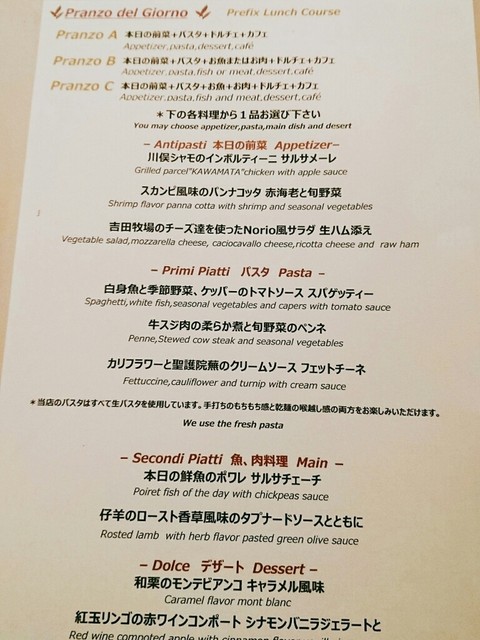 Pranzo del Giorno Prefix Lunch Course
Pranzo A 本日の前菜+パスタ+ドルチェ+カフェ
Appetizer,pasta,dessert,café
Pranzo B 本日の前菜+パスタ+お魚またはお肉+ドルチェ+カフェ
Appetizer,pasta,fish or meat,dessert,café
Pranzo C 本日の前菜+パスタ+お魚+お肉+ドルチェ+カフェ
Appetizer,pasta,fish and meat,dessert,café
*下の各料理から1品お選び下さい
You may choose appetizer,pasta,main dish and desert
– Antipasti 本日の前菜 Appetizer–
川俣シャモのインボルティーニ サルサメーレ
Grilled parcel"KAWAMATA"chicken with apple sauce
スカンピ風味のパンナコッタ 赤海老と旬野菜
Shrimp flavor panna cotta with shrimp and seasonal vegetables
吉田牧場のチーズ達を使ったNorio風サラダ 生ハム添え
Vegetable salad,mozzarella cheese, caciocavallo cheese,ricotta cheese and raw ham
– Primi Piatti パスタ Pasta –
白身魚と季節野菜、ケッパーのトマトソース スパゲッティー
Spaghetti,white fish,seasonal vegetables and capers with tomato sauce
牛スジ肉の柔らか煮と旬野菜のペンネ
Penne,Stewed cow steak and seasonal vegetables
カリフラワーと聖護院蕪のクリームソース フェットチーネ
Fettuccine,cauliflower and turnip with cream sauce
*当店のパスタはすべて生パスタを使用しています。手打ちのもちもち感と乾麺の喉越し感の両方をお楽しみいただけます。
We use the fresh pasta
– Secondi Piatti 魚、肉料理 Main –
本日の鮮魚のポワレ サルサチェーチ
Poiret fish of the day with chickpeas sauce
仔羊のロースト香草風味のタプナードソースとともに
Rosted lamb with herb flavor pasted green olive sauce
– Dolce デザート Dessert –
和栗のモンテビアンコ キャラメル風味
Caramel flavor mont blanc
紅玉リンゴの赤ワインコンポート シナモンバニラジェラートと
Red wine compoted apple with cinnamon flavor